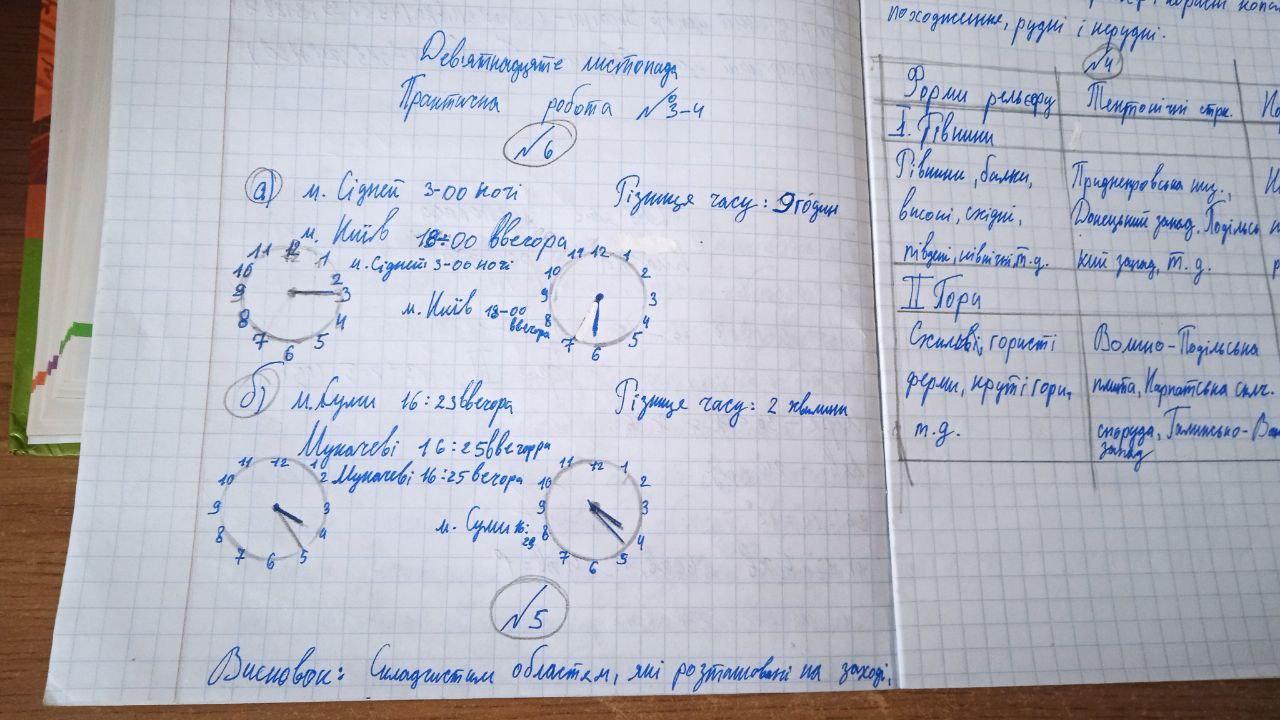 Дев'ятнадцяте листопада
Практична робота №3-4
№6
а) м. Сідней 3-00 ночі Різниця часу: 9 годин
м. Київ 18-00 ввечора
м. Сідней 3-00 ночі
м. Київ 18-00
ввечора
12 1 2 3 4 5 6 7 8 9 10 11
12 1 2 3 4 5 6 7 8 9 10 11
б) м. Суми 16:23 ввечора Різниця часу: 2 хвилини
Мукачеві 16:25 ввечорра
Мукачеві 16:25 вечора
м. Суми 16:
23
12 1 2 3 4 5 6 7 8 9 10 11
12 1 2 3 4 5 6 7 8 9 10 11
№5
Висновок: Складчастим областям, які розташовані на заході,
походження, рудні і нерудні.
№4
Форми рельєфу Тектонічні стр.
I. Рівнини
Рівнини, балки, Придніпровська
високі, східні, Донецький запад. Подільсь
південі, північні, т.д. кий запад, т. д.
II Гори
Схилові, гористі Волино-Подільська
ферми, круті гори, плита, Карпатська склч.
т.д. споруда, Галицько-Во
запад